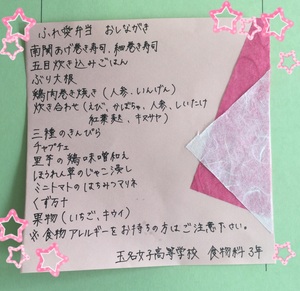 ふれ愛弁当 おしながき
南関あげ巻き寿司、細巻き寿司
五目炊き込みごはん
ぶり大根
鶏肉巻き焼き(人参、いんげん)
炊き合わせ(えび、かぼちゃ、人参、しいたけ
紅葉麩、キヌサヤ)
三種のきんぴら
チャプチェ
里芋の鶏味噌和え
ほうれん草のじゃこ浸し
ミニトマトのはちみつマリネ
くず万十
果物(いちご、キウイ)
※食物アレルギーをお持ちの方はご注意下さい。
玉名女子高等学校 食物科3年